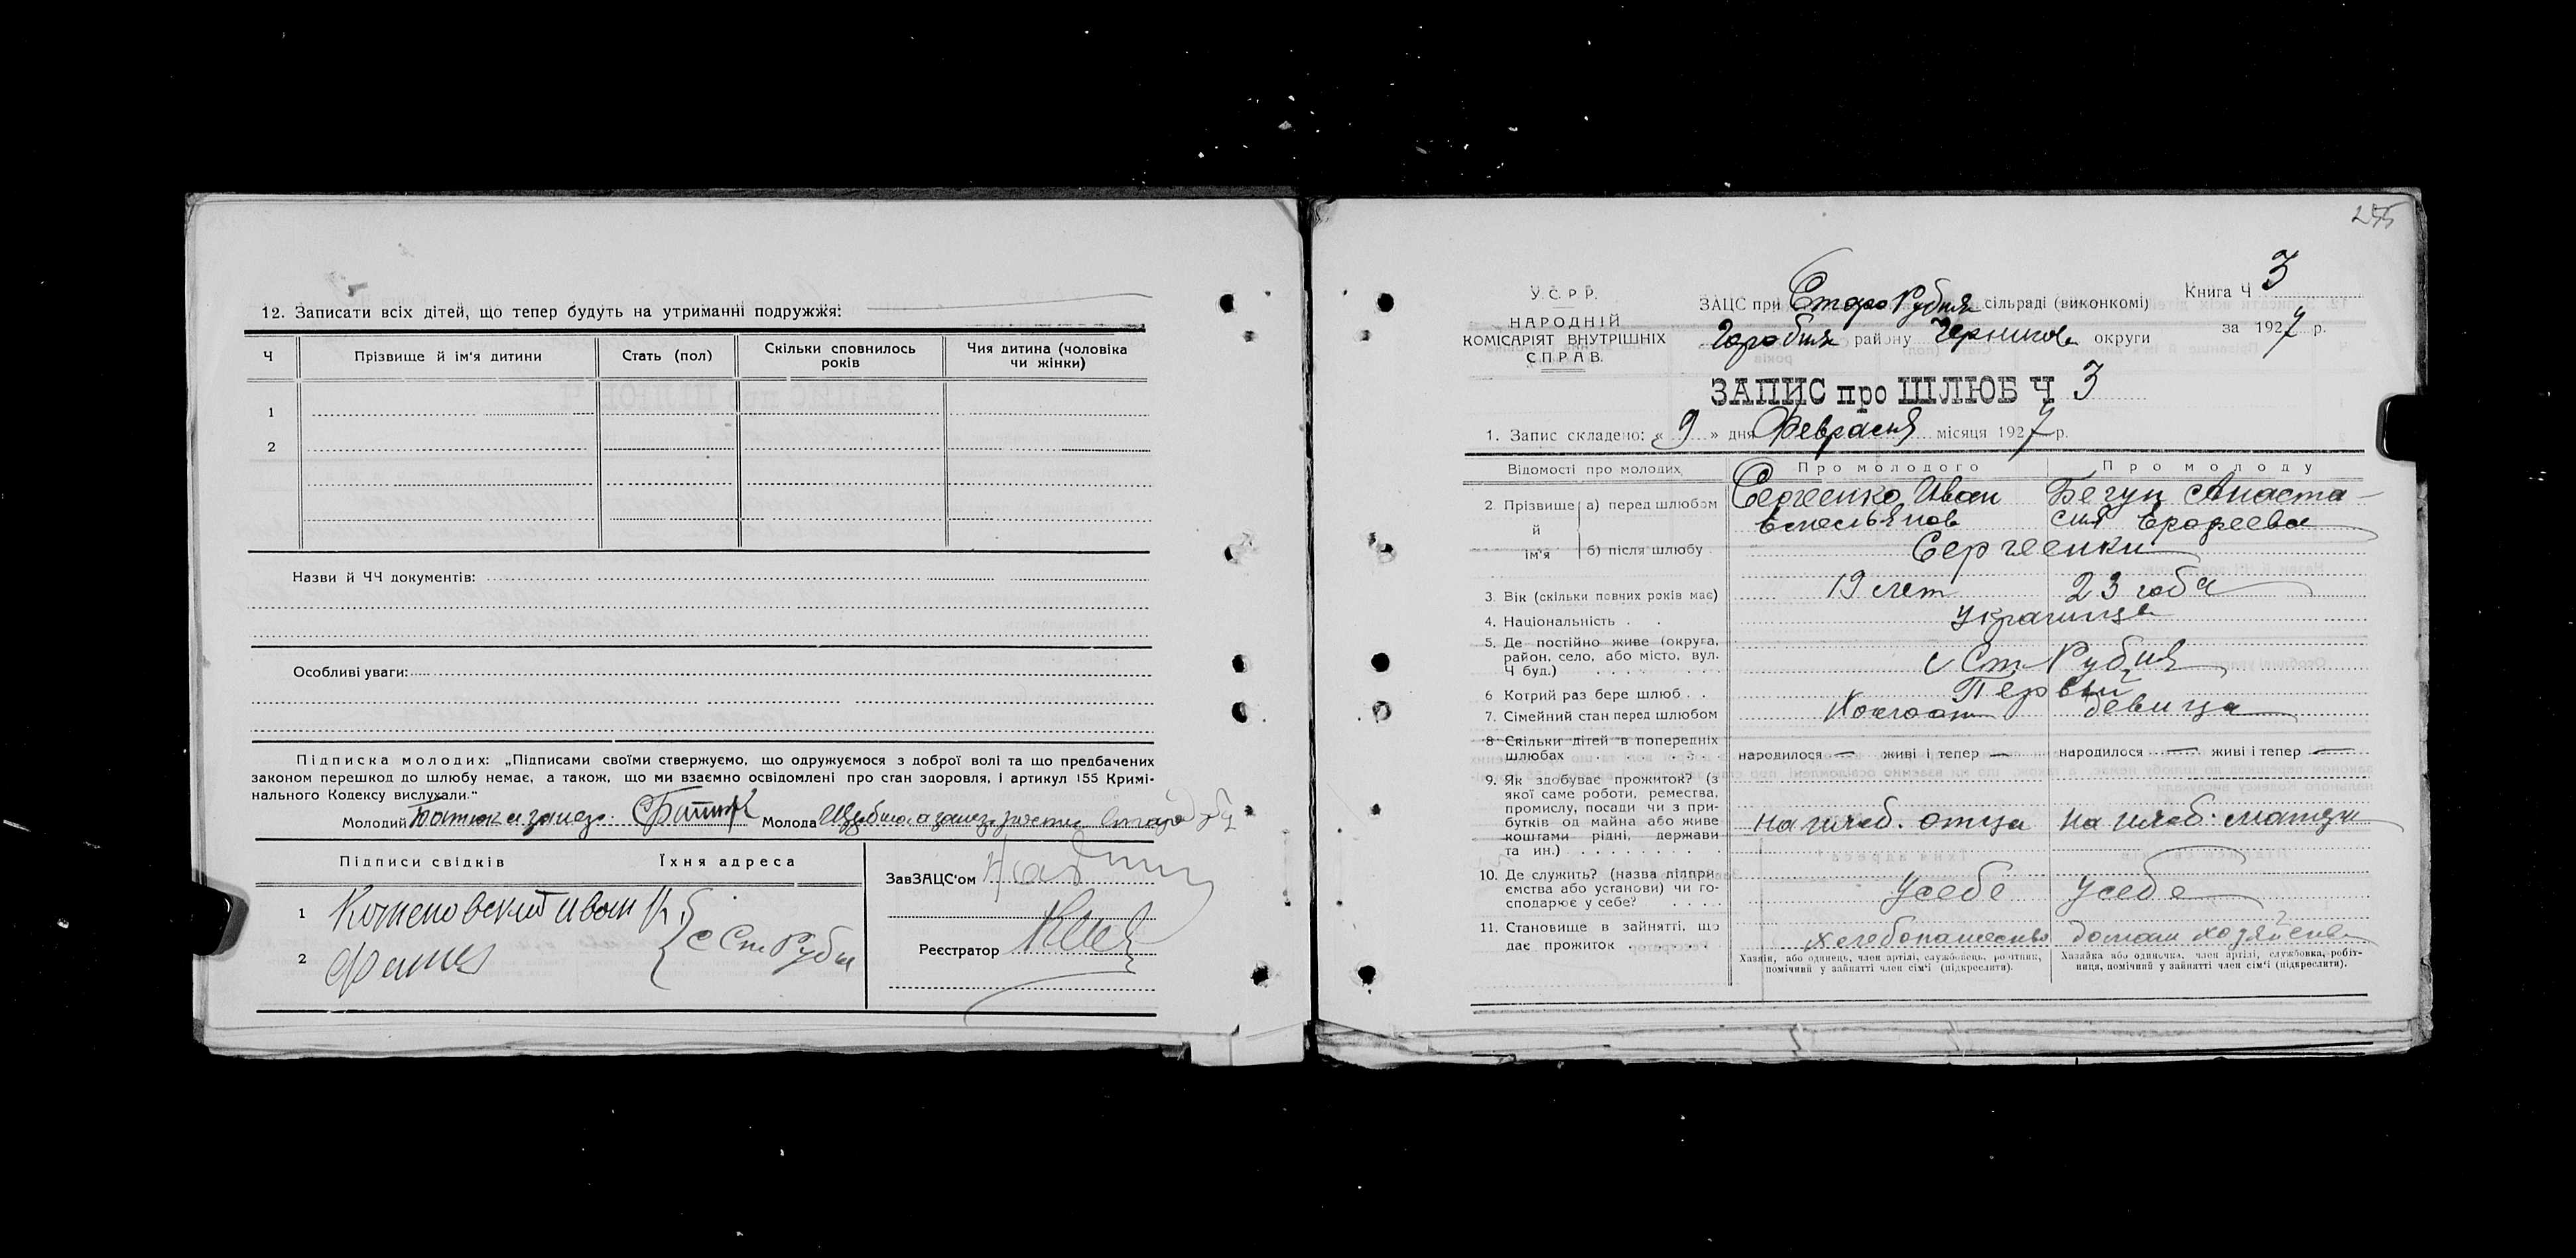 12. Записати всіх дітей, що тепер будуть на утриманні подружжя:
Ч Прізвище й ім'я дитини Стать (пол) Скільки сповнилось років Чия дитина (чоловіка чи жінки)
1
2
Назви й ЧЧ документів:
Особливі уваги:
Підписка молодих: „Підписами своїми ствержуємо, що одружуємося з доброї волі та що предбачених
законом перешкод до шлюбу немає, а також, що ми взаємно освідомлені про стан здоровля, і артикул 155 Кримі-
нального Кодексу вислухали."
Молодий Молода
Підписи свідків Їхня адреса
ЗавЗАЦС'ом
1 Иван К.
с Ст Рубн
2
Реєстратор
255
У.С.Р.Р.
НАРОДНІЙ
КОМІСАРІЯТ ВНУТРІШНІХ
СПРАВ.
ЗАЦС при Старо Рубня сільраді (виконкомі)
Книга Ч 3
району Чернигов округи
за 1927 р.
ЗАПИС про ШЛЮБ Ч 3
1. Запис складено: « 9 » дня Февраля місяця 1927 р.
Відомості про молодих Про молодого Про молоду
2. Прізвище й ім'я а) перед шлюбом Сергеенко Иван Емельянов Бегун Анаста-
сия Ерофеева
б) після шлюбу Сергеенки
3. Вік (скільки повних років має) 19 лет 23 года
4. Національність Украинце
5. Де постійно живе (округа,
район, село, або місто, вул.
Ч буд.) с Ст Рубня
6 Котрий раз бере шлюб Первый
7. Сімейний стан перед шлюбом Холост девица
8 Скільки дітей в попередніх
шлюбах народилося — живі і тепер — народилося — живі і тепер —
9. Як здобуває прожиток? (з
якої саме роботи, ремества,
промислу, посади чи з при-
бутків од майна або живе
коштами рідні, держави
та ин.) на иждев. отца на иждев. матери
10. Де служить? (назва підпри-
ємства або установи) чи го-
сподарює у себе? у себе у себе
11. Становище в зайнятті, що
дає прожиток хлебопашество домаш хозяйсве
Хазяїн, або одинець, член артілі, службовець, робітник,
помічний у зайнятті член сім'ї (підкреслити).
Хазяйка або одиначка, член артілі, службовка, робіт-
ниця, помічний у зайнятті член сім'ї (підкреслити).